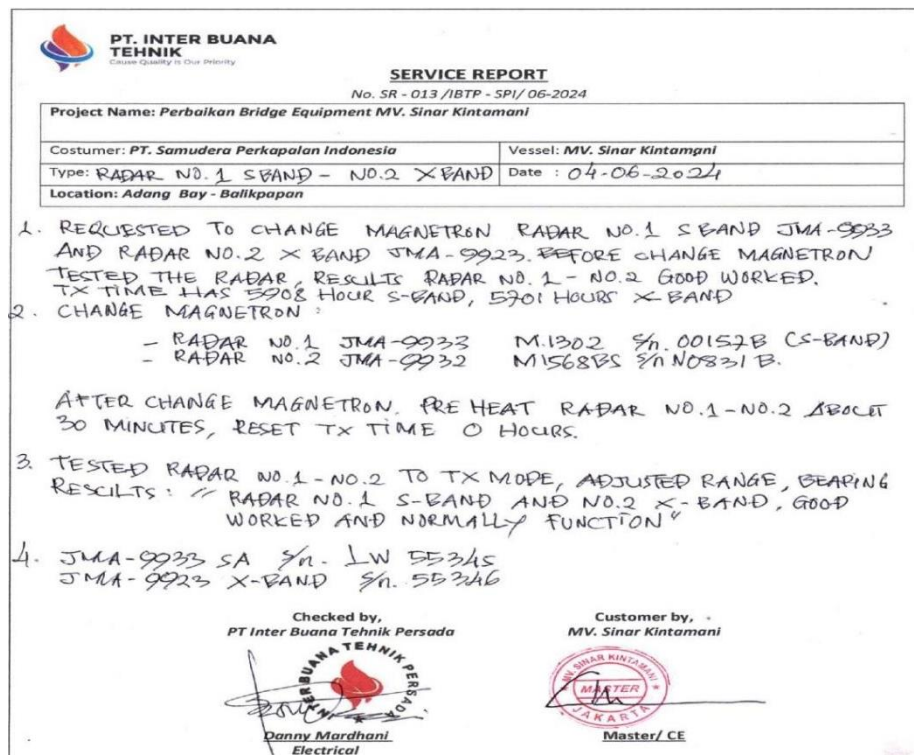 PT. INTER BUANA
TEHNIK
Cause Quality Is Our Priority
SERVICE REPORT
No. SR - 013 /IBTP - SPI/ 06-2024
Project Name: Perbaikan Bridge Equipment MV. Sinar Kintamani
Costumer: PT. Samudera Perkapalan Indonesia Vessel: MV. Sinar Kintamani
Type: RADAR NO.1 SBAND - NO.2 XBAND Date : 04-06-2024
Location: Adang Bay - Balikpapan
1. REQUESTED TO CHANGE MAGNETRON RADAR NO.1 S BAND JMA-9933
AND RADAR NO.2 X BAND JMA-9923. BEFORE CHANGE MAGNETRON
TESTED THE RADAR, RESULTS RADAR NO.1 - NO.2 GOOD WORKED.
TX TIME HAS 5908 HOUR S-BAND, 5701 HOURS X-BAND
2. CHANGE MAGNETRON :
- RADAR NO.1 JMA-9933 M.1302 S/n. 00152B (S-BAND)
- RADAR NO.2 JMA-9932 M1568BS S/n N0831B.
AFTER CHANGE MAGNETRON. PRE HEAT RADAR NO.1-NO.2 ABOUT
30 MINUTES, RESET TX TIME 0 HOURS.
3. TESTED RADAR NO.1-NO.2 TO TX MODE, ADJUSTED RANGE, BEARING
RESULTS : " RADAR NO.1 S-BAND AND NO.2 X-BAND, GOOD
WORKED AND NORMALLY FUNCTION"
4. JMA-9933 SA S/n. LW 55345
JMA-9923 X-BAND S/n. 55346
Checked by,
PT Inter Buana Tehnik Persada
INTER BUANA TEHNIK PERSADA
Danny Mardhani
Electrical
Customer by,
MV. Sinar Kintamani
MV. SINAR KINTAMANI
MASTER
JAKARTA
Master/ CE